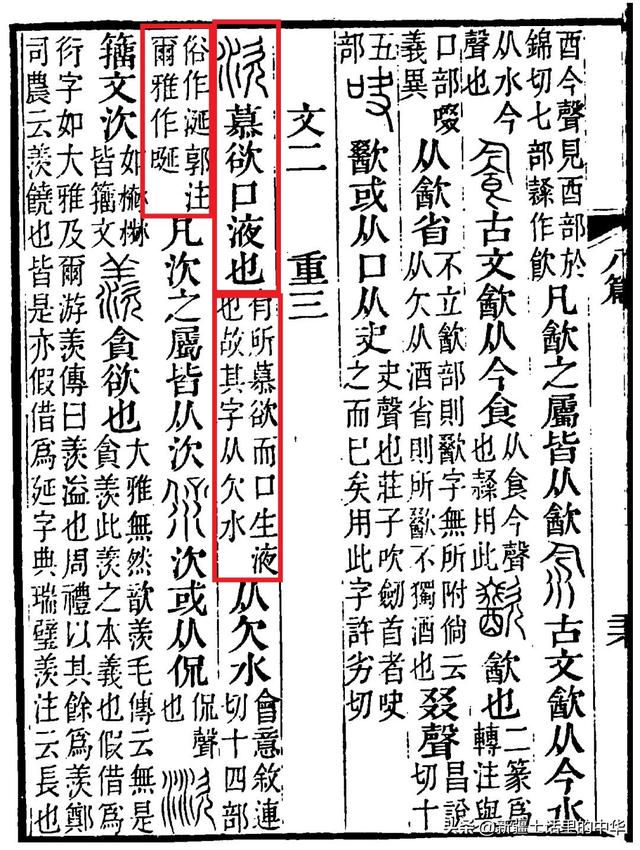 八篇
酉今聲見酉部於
錦切七部隸作飮
凡㱃之屬皆从㱃
古文㱃从今水
从水今
聲也
古文㱃从今食
从食今聲
也隸用此
㱃也
二篆爲
轉注與
口部啜
義異
从㱃省
不立㱃部則歠字無所附倘云
从欠从酒省則所歠不獨酒也
叕聲
昌說
切十
五
部
歠或从口从夬
夬聲也莊子吹劒首者吷
之而已矣用此字許劣切
文二 重三
㳄
慕欲口液也
有所慕欲而口生液
也故其字从欠水
从欠水
會意敘連
切十四部
俗作涎郭注
爾雅作唌
凡㳄之屬皆从㳄
㳄或从侃
侃聲
也
籒文㳄
皆籒文
羨
貪欲也
大雅無然歆羨毛傳云無是
貪羨此羨之本義也假借爲
衍字如大雅及爾游羨傳曰羨溢也周禮以其餘爲羨鄭
司農云羨饒也皆是亦假借爲延字典瑞璧羨注云長也
头条@新疆土话里的中华